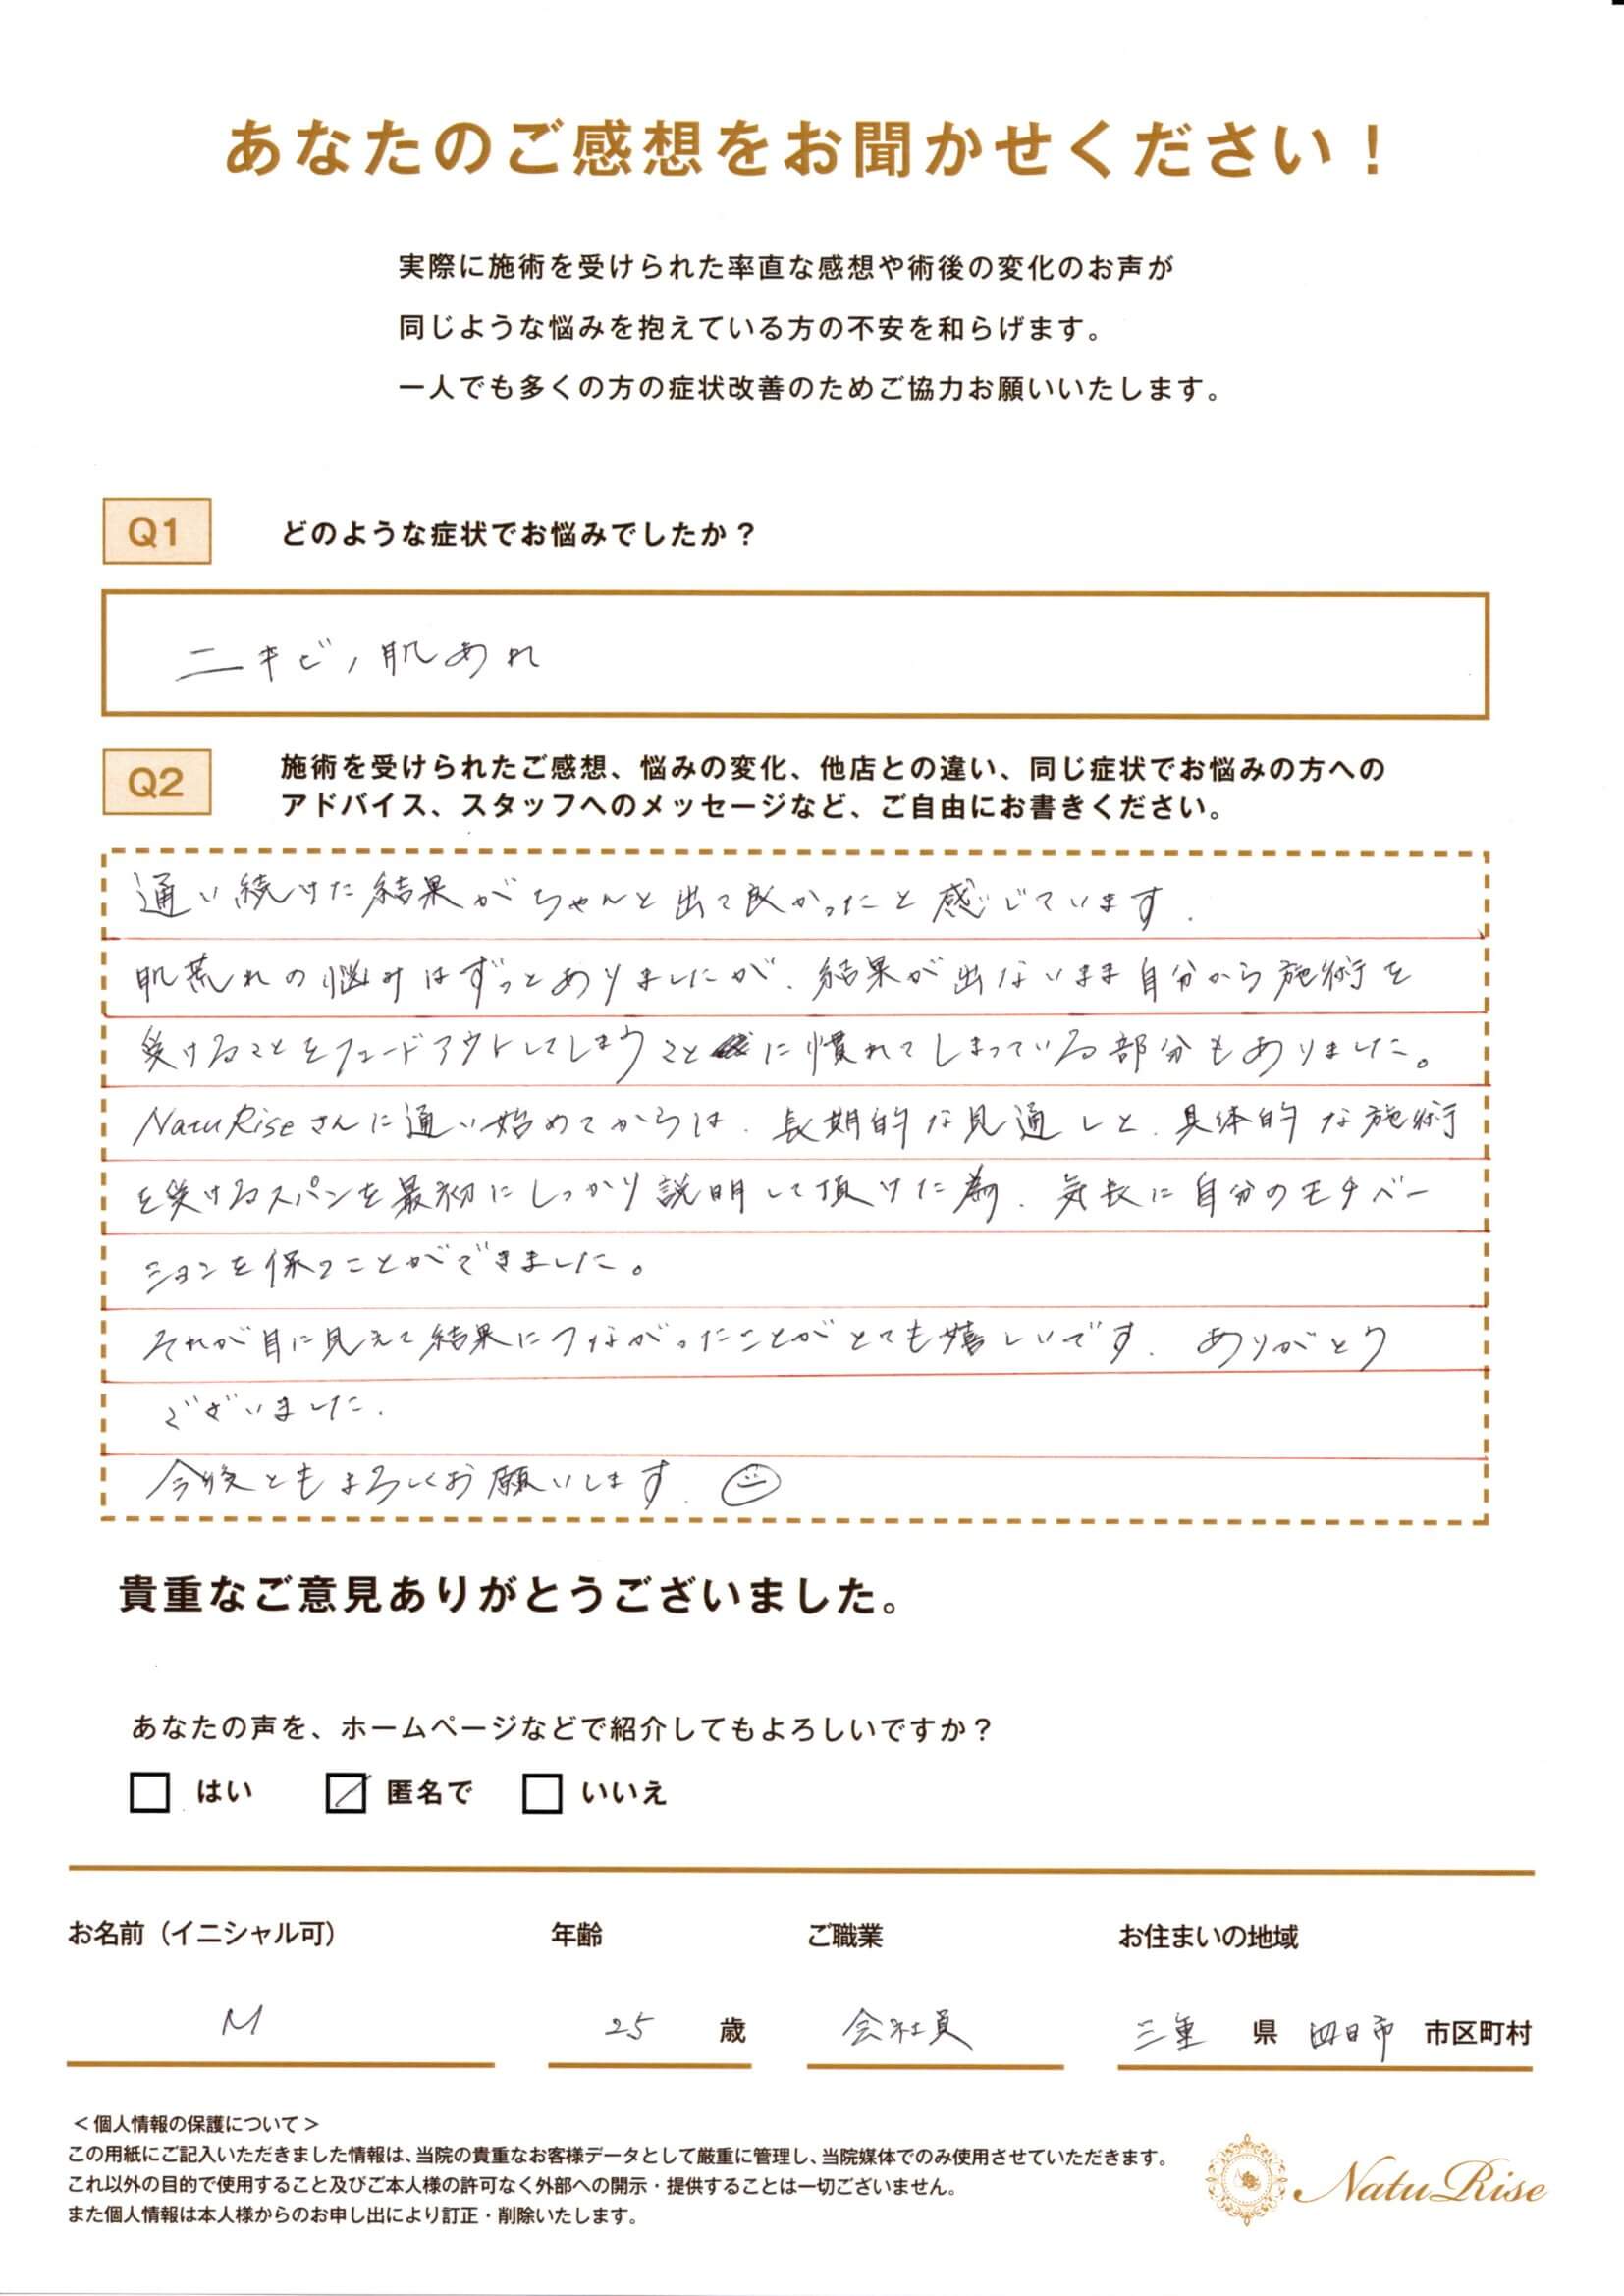 あなたのご感想をお聞かせください！
実際に施術を受けられた率直な感想や術後の変化のお声が
同じような悩みを抱えている方の不安を和らげます。
一人でも多くの方の症状改善のためご協力お願いいたします。
Q1 どのような症状でお悩みでしたか？
ニキビ、肌あれ
Q2 施術を受けられたご感想、悩みの変化、他店との違い、同じ症状でお悩みの方への
アドバイス、スタッフへのメッセージなど、ご自由にお書きください。
通い続けた結果がちゃんと出て良かったと感じています.
肌荒れの悩みはずっとありましたが、結果が出ないまま自分から施術を
受けることをフェードアウトしてしまうことに慣れてしまっている部分もありました。
NatuRiseさんに通い始めてからは、長期的な見通しと、具体的な施術
を受けるスパンを最初にしっかり説明して頂けた為、気長に自分のモチベー
ションを保つことができました。
それが目に見えて結果につながったことがとても嬉しいです. ありがとう
ございました.
今後ともよろしくお願いします.
貴重なご意見ありがとうございました。
あなたの声を、ホームページなどで紹介してもよろしいですか？
はい 匿名で いいえ
お名前（イニシャル可） 年齢 ご職業 お住まいの地域
M 25 歳 会社員 三重 県 四日市 市区町村
＜個人情報の保護について＞
この用紙にご記入いただきました情報は、当院の貴重なお客様データとして厳重に管理し、当院媒体でのみ使用させていただきます。
これ以外の目的で使用すること及びご本人様の許可なく外部への開示・提供することは一切ございません。
また個人情報は本人様からのお申し出により訂正・削除いたします。
NatuRise